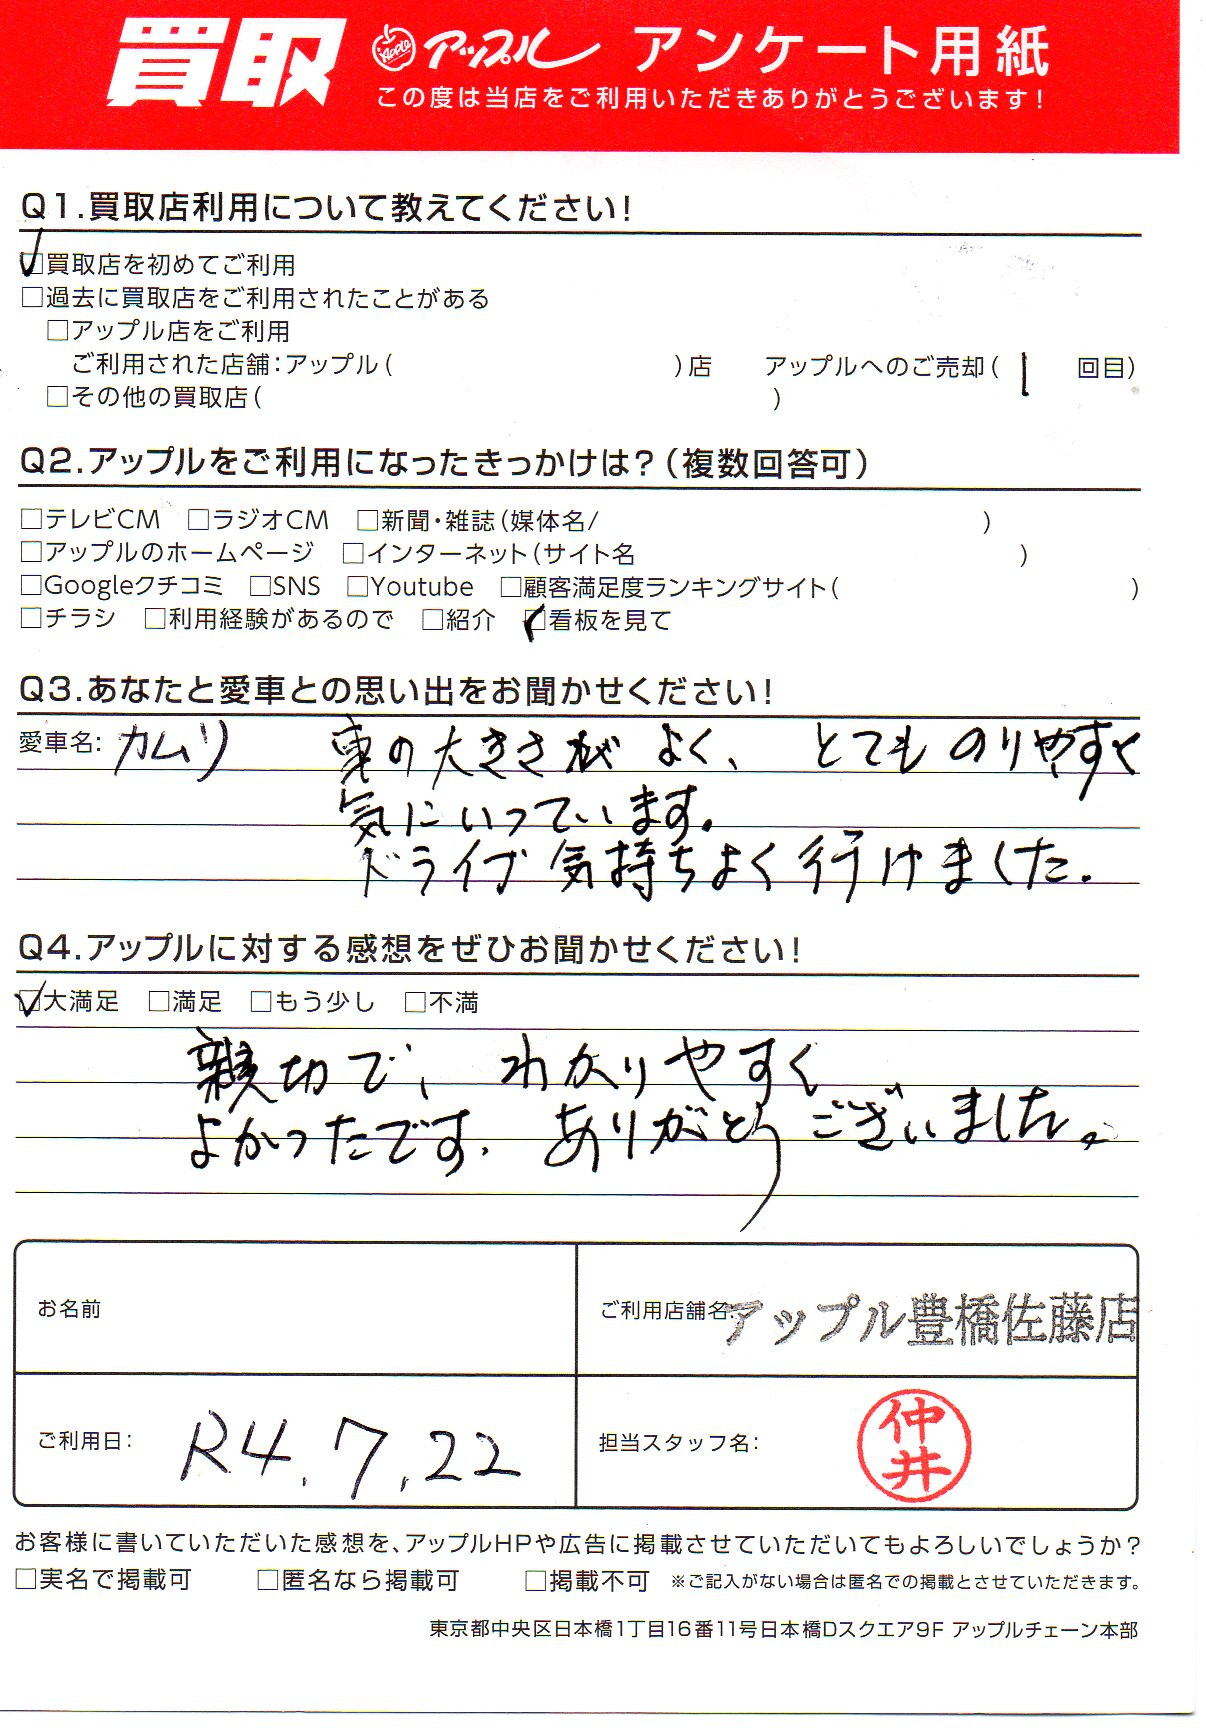 買取 Apple アップル アンケート用紙
この度は当店をご利用いただきありがとうございます!
Q1.買取店利用について教えてください!
☑買取店を初めてご利用
□過去に買取店をご利用されたことがある
□アップル店をご利用
ご利用された店舗:アップル( )店 アップルへのご売却( 1 回目)
□その他の買取店( )
Q2.アップルをご利用になったきっかけは?(複数回答可)
□テレビCM □ラジオCM □新聞・雑誌(媒体名/ )
□アップルのホームページ □インターネット(サイト名 )
□Googleクチコミ □SNS □Youtube □顧客満足度ランキングサイト( )
□チラシ □利用経験があるので □紹介 ☑看板を見て
Q3.あなたと愛車との思い出をお聞かせください!
愛車名: カムリ 車の大きさが よく、 とても のりやすく
気にいっています。
ドライブ 気持ちよく 行けました.
Q4.アップルに対する感想をぜひお聞かせください!
☑大満足 □満足 □もう少し □不満
親切で、わかりやすく
よかったです. ありがとうございました。
お名前
ご利用店舗名: アップル豊橋佐藤店
ご利用日: R4.7.22
担当スタッフ名: 仲井
お客様に書いていただいた感想を、アップルHPや広告に掲載させていただいてもよろしいでしょうか?
□実名で掲載可 □匿名なら掲載可 □掲載不可 ※ご記入がない場合は匿名での掲載とさせていただきます。
東京都中央区日本橋1丁目16番11号日本橋Dスクエア9F アップルチェーン本部